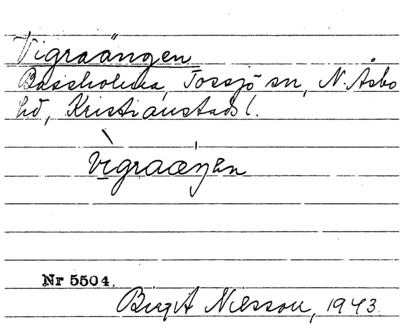 Vigraängen
Bassholma, Tossjö sn, N. Åsbo
hd, Kristianstads l.
vigraæŋen
Nr 5504.
Birgit Nilsson, 1943.